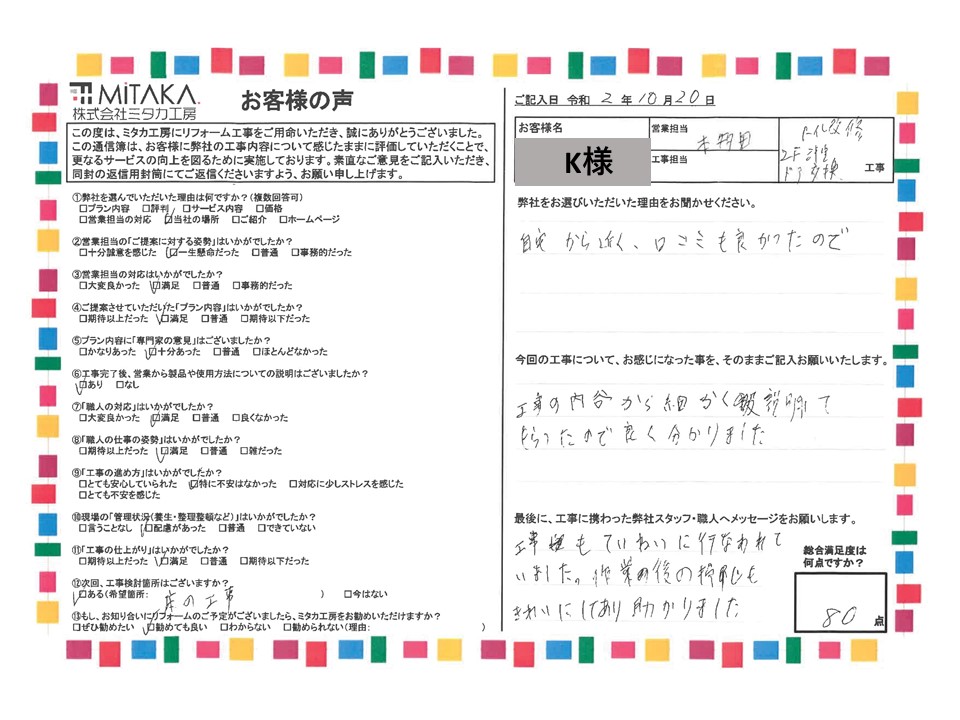 MiTAKA.
株式会社ミタカ工房
お客様の声
この度は、ミタカ工房にリフォーム工事をご用命いただき、誠にありがとうございました。
この通信簿は、お客様に弊社の工事内容について感じたままに評価していただくことで、
更なるサービスの向上を図るために実施しております。素直なご意見をご記入いただき、
同封の返信用封筒にてご返信くださいますよう、お願い申し上げます。
①弊社を選んでいただいた理由は何ですか?(複数回答可)
□プラン内容 □評判 □サービス内容 □価格
□営業担当の対応 ☑当社の場所 □ご紹介 □ホームページ
②営業担当の「ご提案に対する姿勢」はいかがでしたか?
□十分誠意を感じた ☑一生懸命だった □普通 □事務的だった
③営業担当の対応はいかがでしたか?
□大変良かった ☑満足 □普通 □事務的だった
④ご提案させていただいた「プラン内容」はいかがでしたか?
□期待以上だった ☑満足 □普通 □期待以下だった
⑤プラン内容に「専門家の意見」はございましたか?
□かなりあった ☑十分あった □普通 □ほとんどなかった
⑥工事完了後、営業から製品や使用方法についての説明はございましたか?
☑あり □なし
⑦「職人の対応」はいかがでしたか?
□大変良かった ☑満足 □普通 □良くなかった
⑧「職人の仕事の姿勢」はいかがでしたか?
□期待以上だった ☑満足 □普通 □雑だった
⑨「工事の進め方」はいかがでしたか?
□とても安心していられた ☑特に不安はなかった □対応に少しストレスを感じた
□とても不安を感じた
⑩現場の「管理状況(養生・整理整頓など)」はいかがでしたか?
□言うことなし ☑配慮があった □普通 □できていない
⑪「工事の仕上がり」はいかがでしたか?
□期待以上だった ☑満足 □普通 □期待以下だった
⑫次回、工事検討箇所はございますか?
☑ある(希望箇所: 床の工事 ) □今はない
⑬もし、お知り合いにリフォームのご予定がございましたら、ミタカ工房をお勧めいただけますか?
□ぜひ勧めたい ☑勧めても良い □わからない □勧められない(理由: )
ご記入日 令和 2 年 10 月 20 日
お客様名
K様
営業担当
工事担当
トイレ改修
2F洋室
ドア交換
工事
弊社をお選びいただいた理由をお聞かせください。
自宅から近く、口コミも良かったので
今回の工事について、お感じになった事を、そのままご記入お願いいたします。
工事の内容から細かく説明して
もらったので良く分かりました
最後に、工事に携わった弊社スタッフ・職人へメッセージをお願いします。
工事もていねいに行なわれて
いました。作業の後の掃除も
きれいにしてあり助かりました
総合満足度は
何点ですか?
80 点